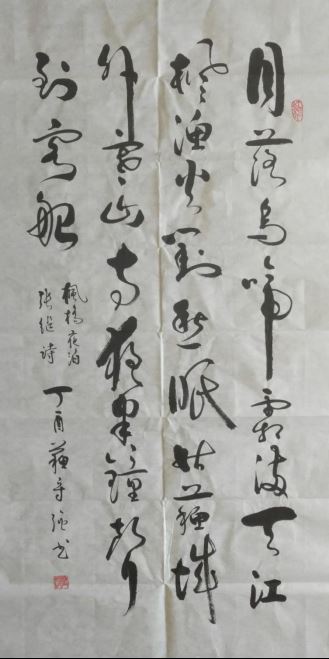 月落乌啼霜满天江
枫渔火对愁眠姑苏城
外寒山寺夜半钟声
到客船
枫桥夜泊
张继诗
丁酉苏守强书